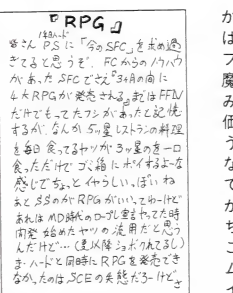 『RPG』
1年目ハード
皆さんPSに「今のSFC」を求め過
ぎてると思うぞ。FCからのノウハウ
があったSFCでさえ"3ヶ月の間に
4大RPGが発売される。"まではFFⅣ
だけでもってたフシがあったと記憶
するが、なんか5ッ星レストランの料理
を毎日食ってるヤツが3ッ星の方を一口
食っただけでゴミ箱にポイするよーな
感じでちょっとイヤらしい。ぽいね
あとSSのがRPGがいい、てわーけど
あれはMD時代のロープレ宣言やってた時
内発始めたヤツの流用だと思う
んだけど…(
以降ショボくれてるし)
ま・ハードと同時にRPGを発売でき
なかったのはSCEの失態だろーけどさ
が
は
フ
魔
み
価
う
な
て
が
ち
こ
ム